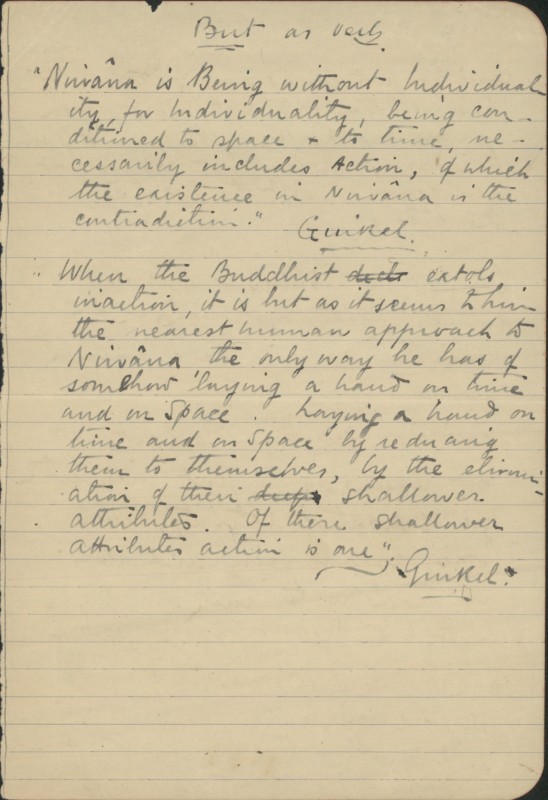 But as verb.
"Nirvâna is Being without Individual
ity, for Individuality, being con-
ditioned to space & to time, ne-
cessarily includes Action, of which
the existence in Nirvâna is the
contradiction."
Ginkel.
"When the Buddhist extols
inaction, it is but as it seems to him
the nearest human approach to
Nirvâna the only way he has of
somehow laying a hand on time
and on Space. Laying a hand on
time and on Space by reducing
them to themselves, by the elimin-
ation of their shallower
attributes. Of these shallower
attributes action is one".
Ginkel."